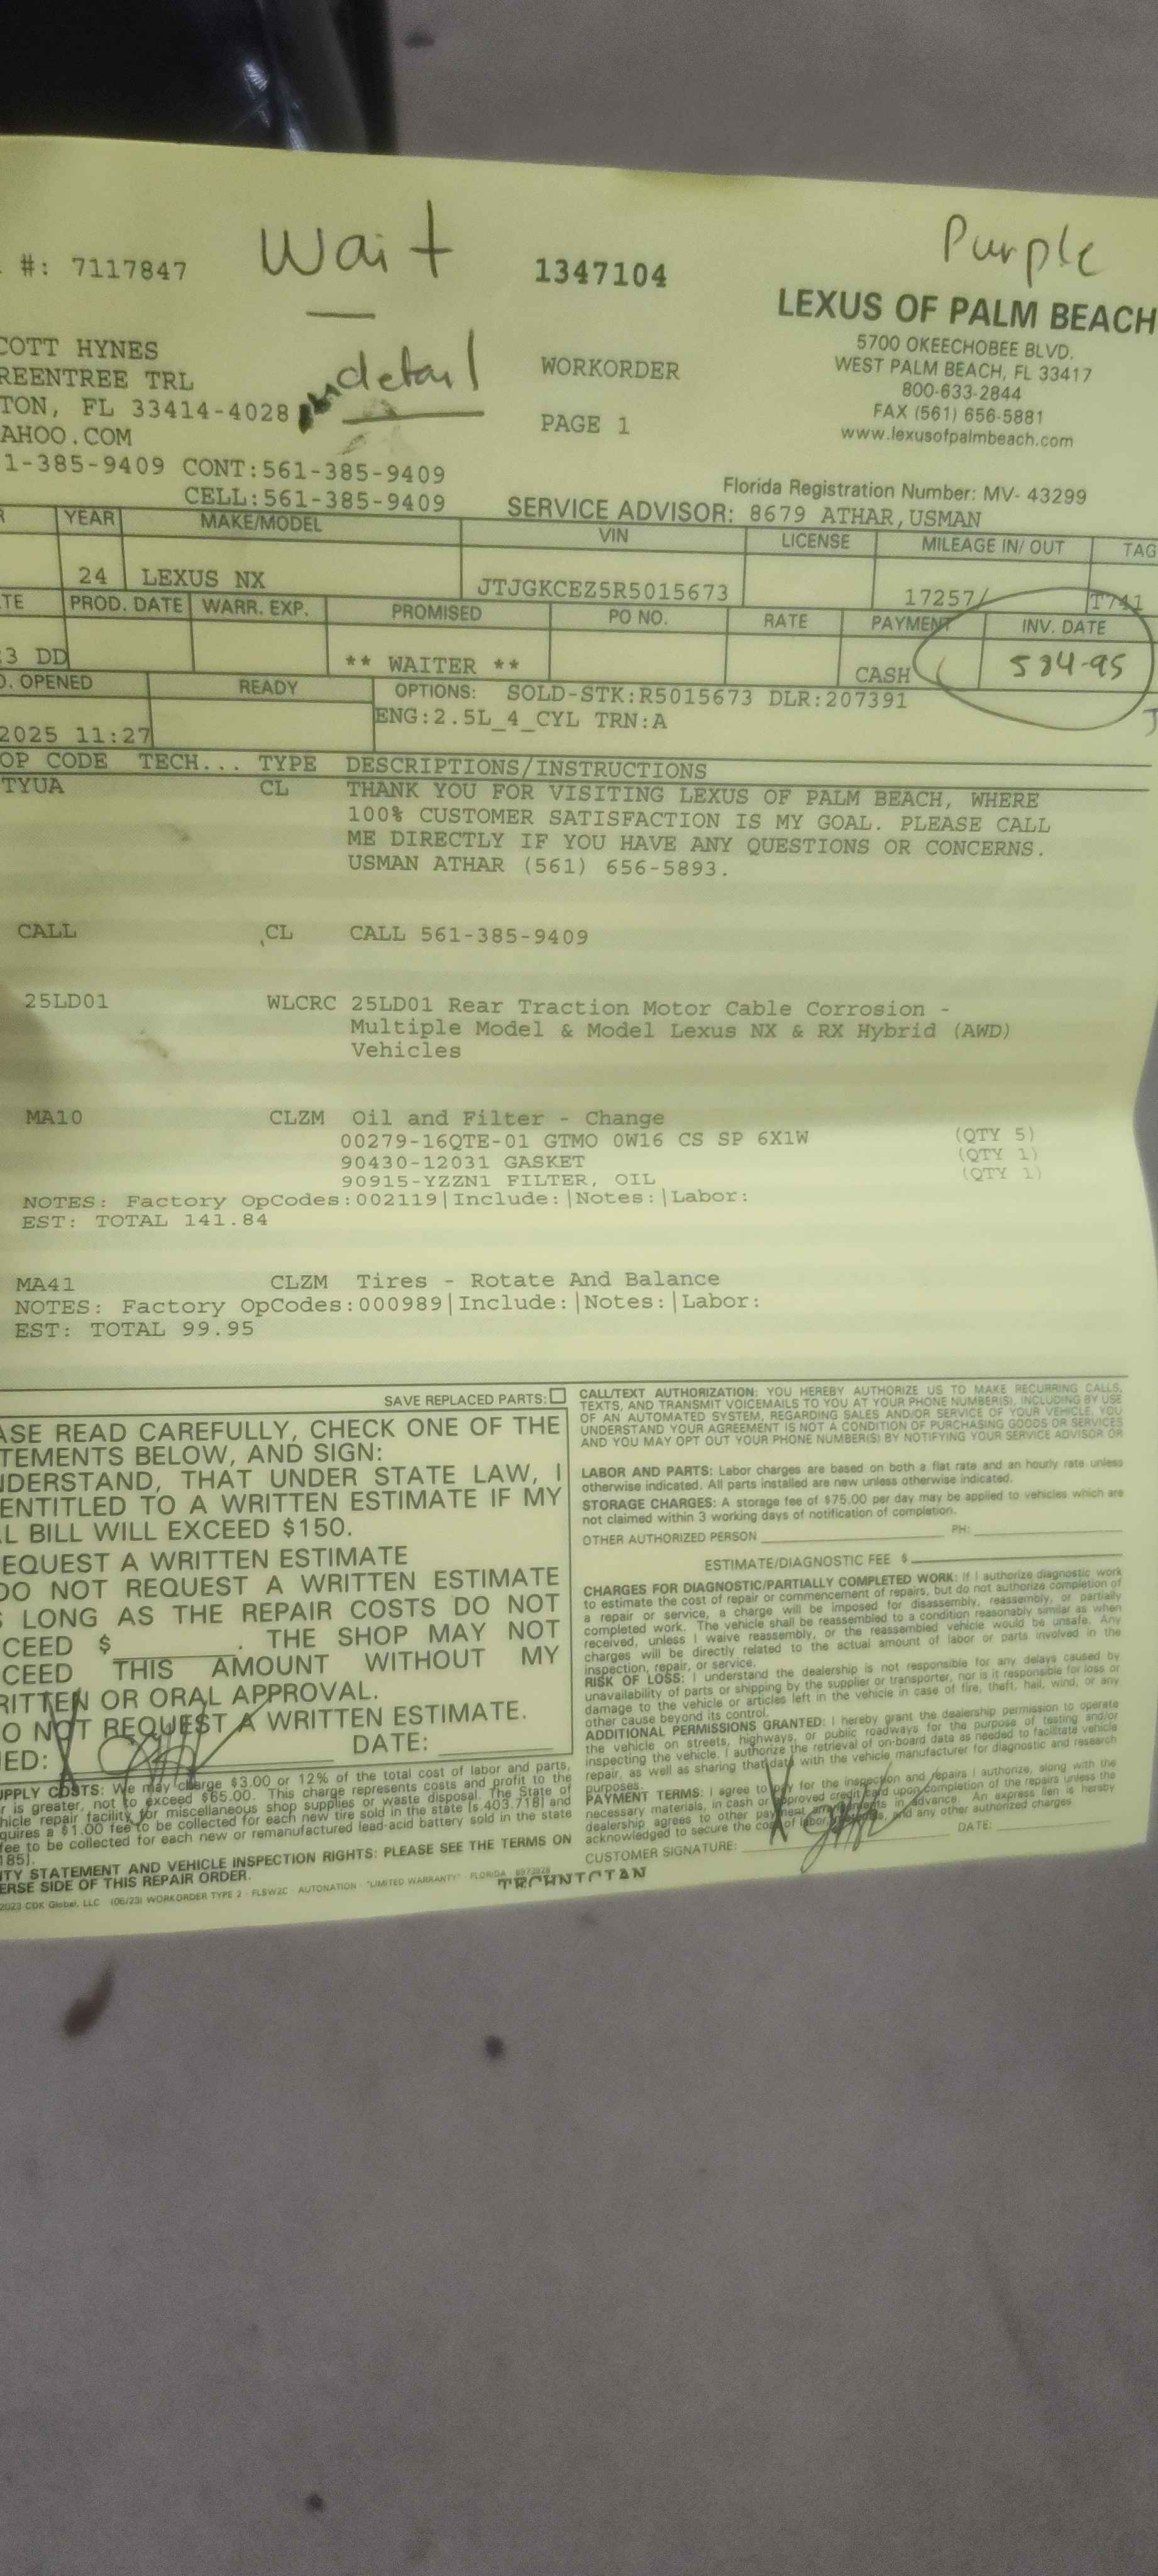 Wait
Purple
#: 7117847
1347104
LEXUS OF PALM BEACH
5700 OKEECHOBEE BLVD.
WEST PALM BEACH, FL 33417
800-633-2844
FAX (561) 656-5881
www.lexusofpalmbeach.com
COTT HYNES
REENTREE TRL
TON, FL 33414-4028
detail
AHOO.COM
WORKORDER
PAGE 1
1-385-9409 CONT:561-385-9409
CELL:561-385-9409
Florida Registration Number: MV- 43299
SERVICE ADVISOR: 8679 ATHAR,USMAN
R YEAR MAKE/MODEL VIN LICENSE MILEAGE IN/ OUT TAG
24 LEXUS NX JTJGKCEZ5R5015673 17257/ T741
TE PROD. DATE WARR. EXP. PROMISED PO NO. RATE PAYMENT INV. DATE
3 DD ** WAITER ** CASH 584-95
O. OPENED READY OPTIONS: SOLD-STK:R5015673 DLR:207391
ENG:2.5L_4_CYL TRN:A
2025 11:27
OP CODE TECH... TYPE DESCRIPTIONS/INSTRUCTIONS
TYUA CL THANK YOU FOR VISITING LEXUS OF PALM BEACH, WHERE
100% CUSTOMER SATISFACTION IS MY GOAL. PLEASE CALL
ME DIRECTLY IF YOU HAVE ANY QUESTIONS OR CONCERNS.
USMAN ATHAR (561) 656-5893.
CALL CL CALL 561-385-9409
25LD01 WLCRC 25LD01 Rear Traction Motor Cable Corrosion -
Multiple Model & Model Lexus NX & RX Hybrid (AWD)
Vehicles
MA10 CLZM Oil and Filter - Change
00279-16QTE-01 GTMO 0W16 CS SP 6X1W (QTY 5)
90430-12031 GASKET (QTY 1)
90915-YZZN1 FILTER, OIL (QTY 1)
NOTES: Factory OpCodes:002119|Include:|Notes:|Labor:
EST: TOTAL 141.84
MA41 CLZM Tires - Rotate And Balance
NOTES: Factory OpCodes:000989|Include:|Notes:|Labor:
EST: TOTAL 99.95
SAVE REPLACED PARTS:
ASE READ CAREFULLY, CHECK ONE OF THE
TEMENTS BELOW, AND SIGN:
NDERSTAND, THAT UNDER STATE LAW, I
ENTITLED TO A WRITTEN ESTIMATE IF MY
L BILL WILL EXCEED $150.
EQUEST A WRITTEN ESTIMATE
DO NOT REQUEST A WRITTEN ESTIMATE
S LONG AS THE REPAIR COSTS DO NOT
CEED $ . THE SHOP MAY NOT
CEED THIS AMOUNT WITHOUT MY
RITTEN OR ORAL APPROVAL.
O NOT REQUEST A WRITTEN ESTIMATE.
ED: DATE:
UPPLY COSTS: We may charge $3.00 or 12% of the total cost of labor and parts,
r is greater, not to exceed $65.00. This charge represents costs and profit to the
hicle repair facility for miscellaneous shop supplies or waste disposal. The State of
quires a $1.00 fee to be collected for each new tire sold in the state [s.403.718] and
fee to be collected for each new or remanufactured lead-acid battery sold in the state
185].
TY STATEMENT AND VEHICLE INSPECTION RIGHTS: PLEASE SEE THE TERMS ON
ERSE SIDE OF THIS REPAIR ORDER.
2023 CDK Global, LLC (06/23) WORKORDER TYPE 2 - FLSW2C AUTONATION - "LIMITED WARRANTY" - FLORIDA
CALL/TEXT AUTHORIZATION: YOU HEREBY AUTHORIZE US TO MAKE RECURRING CALLS,
TEXTS, AND TRANSMIT VOICEMAILS TO YOU AT YOUR PHONE NUMBER(S), INCLUDING BY USE
OF AN AUTOMATED SYSTEM, REGARDING SALES AND/OR SERVICE OF YOUR VEHICLE. YOU
UNDERSTAND YOUR AGREEMENT IS NOT A CONDITION OF PURCHASING GOODS OR SERVICES
AND YOU MAY OPT OUT YOUR PHONE NUMBER(S) BY NOTIFYING YOUR SERVICE ADVISOR OR
LABOR AND PARTS: Labor charges are based on both a flat rate and an hourly rate unless
otherwise indicated. All parts installed are new unless otherwise indicated.
STORAGE CHARGES: A storage fee of $75.00 per day may be applied to vehicles which are
not claimed within 3 working days of notification of completion.
OTHER AUTHORIZED PERSON PH:
ESTIMATE/DIAGNOSTIC FEE $
CHARGES FOR DIAGNOSTIC/PARTIALLY COMPLETED WORK: If I authorize diagnostic work
to estimate the cost of repair or commencement of repairs, but do not authorize completion of
a repair or service, a charge will be imposed for disassembly, reassembly, or partially
completed work. The vehicle shall be reassembled to a condition reasonably similar as when
received, unless I waive reassembly, or the reassembled vehicle would be unsafe. Any
charges will be directly related to the actual amount of labor or parts involved in the
inspection, repair, or service.
RISK OF LOSS: I understand the dealership is not responsible for any delays caused by
unavailability of parts or shipping by the supplier or transporter, nor is it responsible for loss or
damage to the vehicle or articles left in the vehicle in case of fire, theft, hail, wind, or any
other cause beyond its control.
ADDITIONAL PERMISSIONS GRANTED: I hereby grant the dealership permission to operate
the vehicle on streets, highways, or public roadways for the purpose of testing and/or
inspecting the vehicle. I authorize the retrieval of on-board data as needed to facilitate vehicle
repair, as well as sharing that data with the vehicle manufacturer for diagnostic and research
purposes.
PAYMENT TERMS: I agree to pay for the inspection and repairs I authorize, along with the
necessary materials, in cash or approved credit card upon completion of the repairs unless the
dealership agrees to other payment arrangements in advance. An express lien is hereby
acknowledged to secure the cost of labor, and any other authorized charges.
CUSTOMER SIGNATURE: DATE:
TECHNICIAN